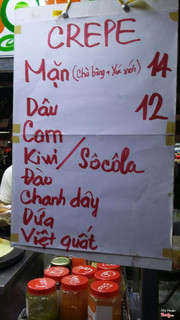 CREPE
Mặn (Chà bông + Xúc xích) 14
Dâu 12
Cam
Kiwi / Sôcôla
Đào
Chanh dây
Dứa
Việt quất